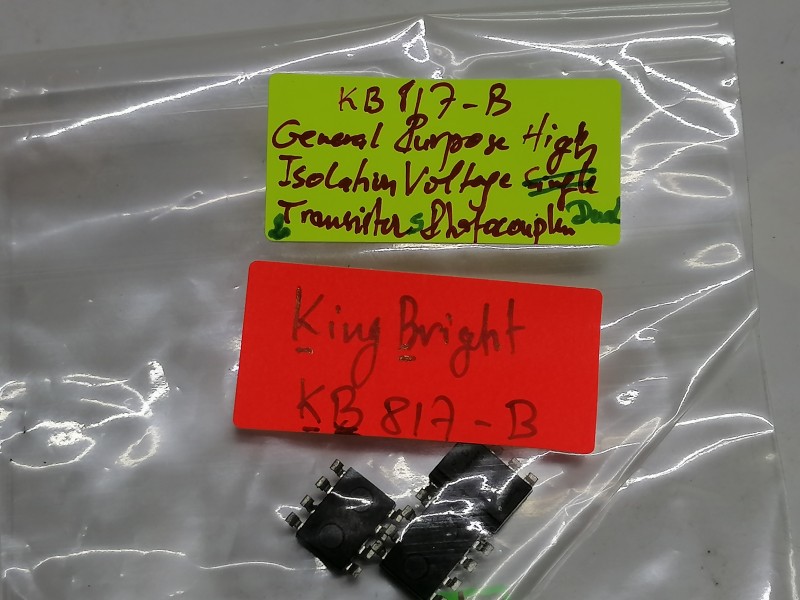 KB 817-B
General Purpose High
Isolation Voltage Single
Transistor s Photocoupler Dual
King Bright
KB 817-B